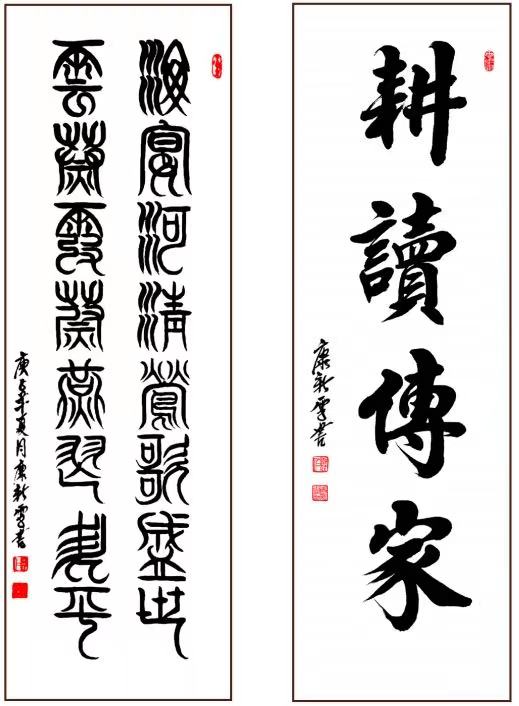 耕讀傳家
康新書
海宴河清鶯歌盛世
雲蒸霞蔚燕舞升平
庚子年夏月康新書